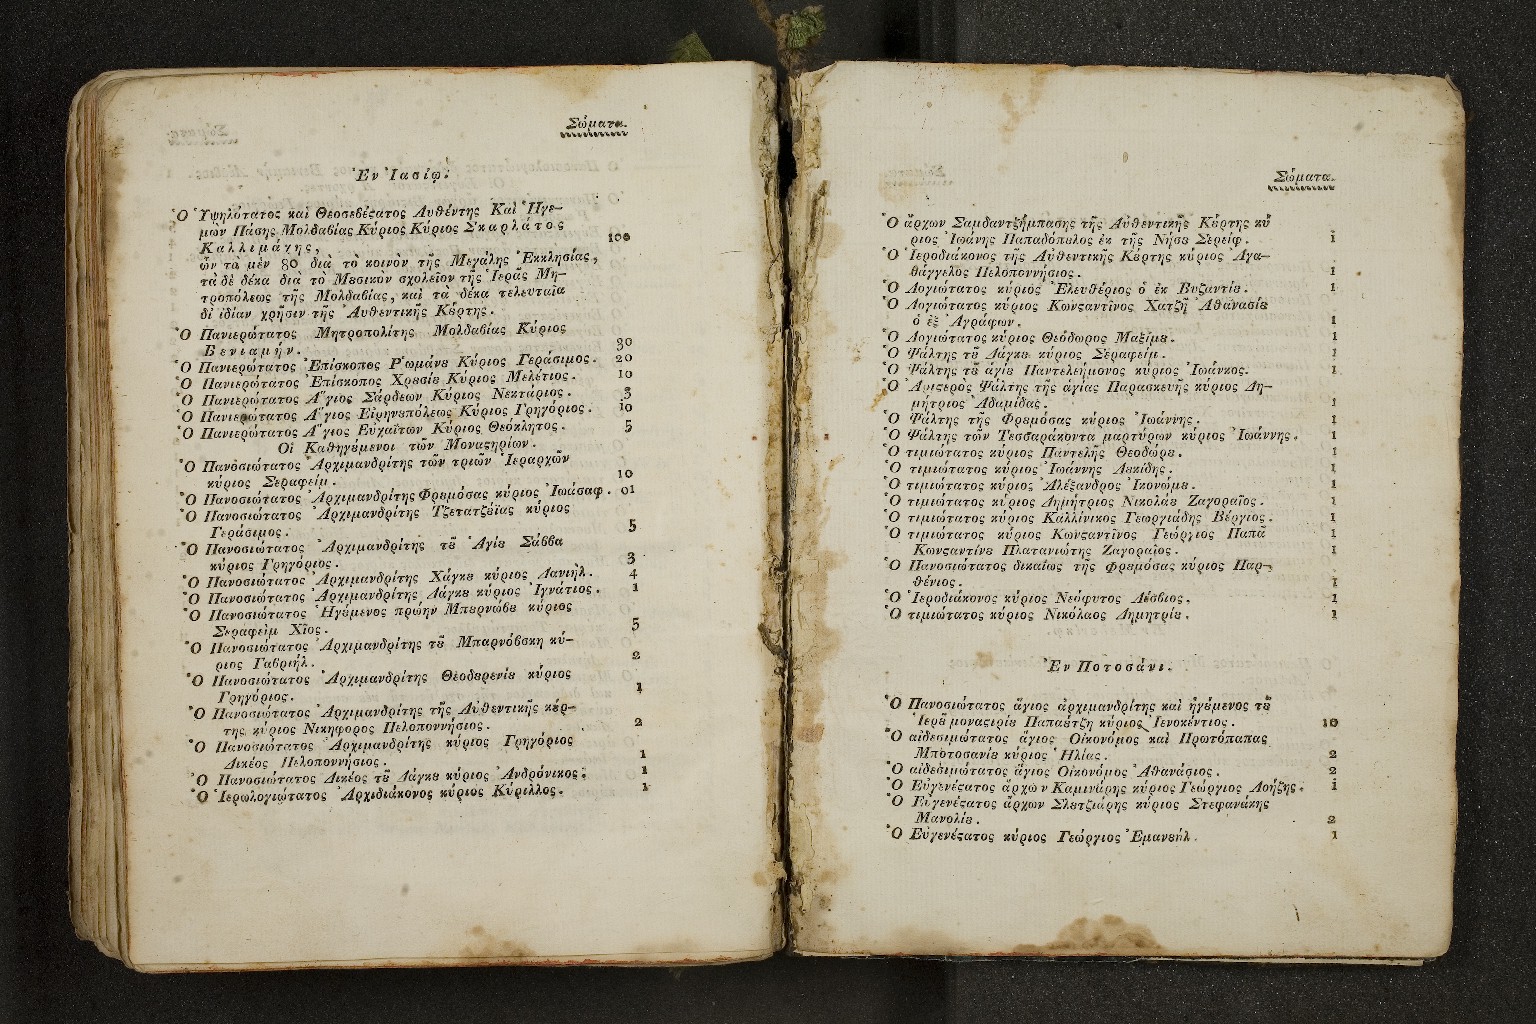 Σώματα.
Ἐν Ἰασίῳ.
Ὁ Ὑψηλότατος καὶ Θεοσεβέϛατος Αυθέντης Καὶ Ἡγε-
μὼν Πάσης Μολδαβίας Κύριος Κύριος Σκαρλάτος
Καλλιμάχης, 100
ὧν τὰ μὲν 80 διὰ τὸ κοινὸν τῆς Μεγάλης Ἐκκλησίας,
τὰ δὲ δέκα διὰ τὸ Μȣσικὸν σχολεῖον τῆς Ἱερᾶς Μη-
τροπόλεως τῆς Μολδαβίας, καὶ τὰ δέκα τελευταῖα
δἰ ἰδίαν χρῆσιν τῆς Ἀυθεντικῆς Κȣ́ρτης.
Ὁ Πανιερώτατος Μητροπολίτης Μολδαβίας Κύριος
Βενιαμήν. 30
Ὁ Πανιερώτατος Ἐπίσκοπος Ῥωμάνȣ Κύριος Γεράσιμος. 20
Ὁ Πανιερώτατος Ἐπίσκοπος Χȣσίȣ Κύριος Μελέτιος. 10
Ὁ Πανιερώτατος Ἅγιος Σάρδεων Κύριος Νεκτάριος. 3
Ὁ Πανιερώτατος Ἅγιος Εἰρηνȣπόλεως Κύριος Γρηγόριος. 10
Ὁ Πανιερώτατος Ἅγιος Εὐχαΐτων Κύριος Θεόκλητος. 5
Οἱ Καθηγȣ́μενοι τῶν Μοναϛηρίων.
Ὁ Πανοσιώτατος Ἀρχιμανδρίτης τῶν τριῶν Ἱεραρχῶν
κύριος Σεραφείμ. 10
Ὁ Πανοσιώτατος Ἀρχιμανδρίτης Φρȣμόσας κύριος Ἰωάσαφ. 01
Ὁ Πανοσιώτατος Ἀρχιμανδρίτης Τζετατζȣ́ϊας κύριος
Γεράσιμος. 5
Ὁ Πανοσιώτατος Ἀρχιμανδρίτης τȣ͂ Ἁγίȣ Σάββα
κύριος Γρηγόριος. 3
Ὁ Πανοσιώτατος Ἀρχιμανδρίτης Χάγκȣ κύριος Δανιήλ. 4
Ὁ Πανοσιώτατος Ἀρχιμανδρίτης Δάγκȣ κύριος Ἰγνάτιος. 1
Ὁ Πανοσιώτατος Ἡγȣ́μενος πρώην Μπερνώβȣ κύριος
Σεραφεὶμ Χῖος. 5
Ὁ Πανοσιώτατος Ἀρχιμανδρίτης τȣ͂ Μπαρνόβσκη κύ-
ριος Γαβριήλ. 2
Ὁ Πανοσιώτατος Ἀρχιμανδρίτης Θεοδȣρενίȣ κύριος
Γρηγόριος. 1
Ὁ Πανοσιώτατος Ἀρχιμανδρίτης τῆς Αὐθεντικῆς κȣ́ρ-
της κύριος Νικηφορος Πελοποννήσιος. 2
Ὁ Πανοσιώτατος Ἀρχιμανδρίτης κύριος Γρηγόριος
Δικέος Πελοποννήσιος. 1
Ὁ Πανοσιώτατος Δικέος τȣ͂ Δάγκȣ κύριος Ἀνδρόνικος. 1
Ὁ Ἱερωλογιώτατος Ἀρχιδιάκονος κύριος Κύριλλος. 1
Σώματα.
Ὁ ἄρχων Σαμδαντζήμπασης τῆς Αὐθεντικῆς Κȣ́ρτης κύ
ριος Ἰωάνης Παπαδόπȣλος ἐκ τῆς Νήσȣ Σερείφ. 1
Ὁ Ἱεροδιάκονος τῆς Αὐθεντικῆς Κȣ́ρτης κύριος Ἀγα-
θάγγελος Πελοποννήσιος. 1
Ὁ Λογιώτατος κύριος Ἐλευθέριος ὁ ἐκ Βυζαντίȣ. 1
Ὁ Λογιώτατος κύριος Κωνϛαντῖνος Χατζῆ Ἀθανασίȣ
ὁ ἐξ Ἀγράφων. 1
Ὁ Λογιώτατος κύριος Θεόδωρος Μαξίμȣ. 1
Ὁ Ψάλτης τȣ͂ Δάγκȣ κύριος Σεραφείμ. 1
Ὁ Ψάλτης τȣ͂ ἁγίȣ Παντελεήμονος κύριος Ἰωάνκος. 1
Ὁ Ἀριϛερὸς Ψάλτης τῆς ἁγίας Παρασκευῆς κύριος Δη-
μήτριος Ἀδαμίδας. 1
Ὁ Ψάλτης τῆς Φρȣμόσας κύριος Ἰωάννης. 1
Ὁ Ψάλτης τῶν Τεσσαράκοντα μαρτύρων κύριος Ἰωάννης. 1
Ὁ τιμιώτατος κύριος Παντελῆς Θεοδώρȣ. 1
Ὁ τιμιώτατος κύριος Ἰωάννης Λεκίδης. 1
Ὁ τιμιώτατος κύριος Ἀλέξανδρος Ἰκονόμȣ. 1
Ὁ τιμιώτατος κύριος Δημήτριος Νικολάȣ Ζαγοραῖος. 1
Ὁ τιμιώτατος κύριος Καλλίνικος Γεωργιάδης Βέργιος. 1
Ὁ τιμιώτατος κύριος Κωνϛαντῖνος Γεώργιος Παπᾶ
Κωνϛαντίνȣ Πλατανιώτης Ζαγοραῖος. 1
Ὁ Πανοσιώτατος δικαίως τῆς φρȣμόσας κύριος Παρ-
θένιος. 1
Ὁ Ἱεροδιάκονος κύριος Νεόφυτος Λέσβιος. 1
Ὁ τιμιώτατος κύριος Νικόλαος Δημητρίȣ. 1
Ἐν Ποτοσάνι.
Ὁ Πανοσιώτατος ἅγιος ἀρχιμανδρίτης καὶ ἡγȣ́μενος τȣ͂
Ἱερȣ͂ μοναϛιρίȣ Παπαȣ́τζη κύριος Ἰενοκέντιος. 10
Ὁ αἰδεσιμώτατος ἅγιος Οἰκονόμος καὶ Πρωτόπαπας
Μποτοσανίȣ κύριος Ἠλίας. 2
Ὁ αἰδεσιμώτατος ἅγιος Οἰκονόμος Ἀθανάσιος. 2
Ὁ Εὐγενέϛατος ἄρχων Καμινάρης κύριος Γεώργιος Λοήζης. 1
Ὁ Εὐγενέϛατος ἄρχων Σλȣτζιάρης κύριος Στεφανάκης
Μανολίȣ. 2
Ὁ Εὐγενέϛατος κύριος Γεώργιος Ἐμανȣήλ. 1